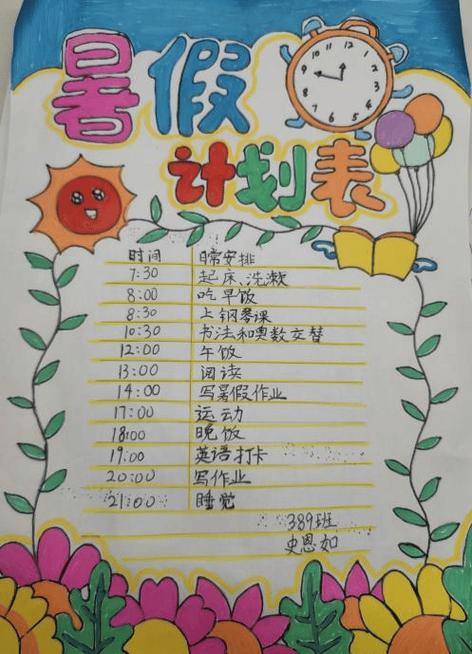 暑假
12
1
2
3
4
5
6
7
8
9
10
11
计划表
时间 日常安排
7:30 起床、洗漱
8:00 吃早饭
8:30 上钢琴课
10:30 书法和奥数交替
12:00 午饭
13:00 阅读
14:00 写暑假作业
17:00 运动
18:00 晚饭
19:00 英语打卡
20:00 写作业
21:00 睡觉
389班
史恩如